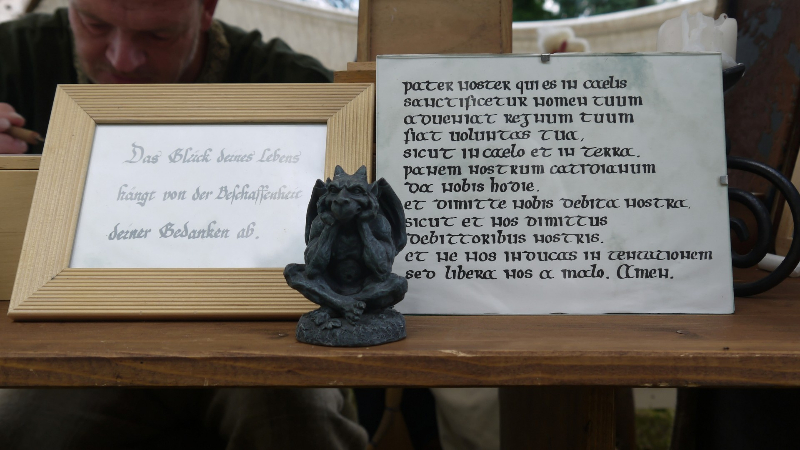 Das Glück deines Lebens
hängt von der Beschaffenheit
deiner Gedanken ab.
pater noster qui es in caelis
sanctificetur nomen tuum
adveniat regnum tuum
fiat voluntas tua,
sicut in caelo et in terra.
panem nostrum catidianum
da nobis hodie.
et dimitte nobis debita nostra,
sicut et nos dimittus
debittoribus nostris.
et ne nos inducas in tentationem
sed libera nos a malo. Amen.